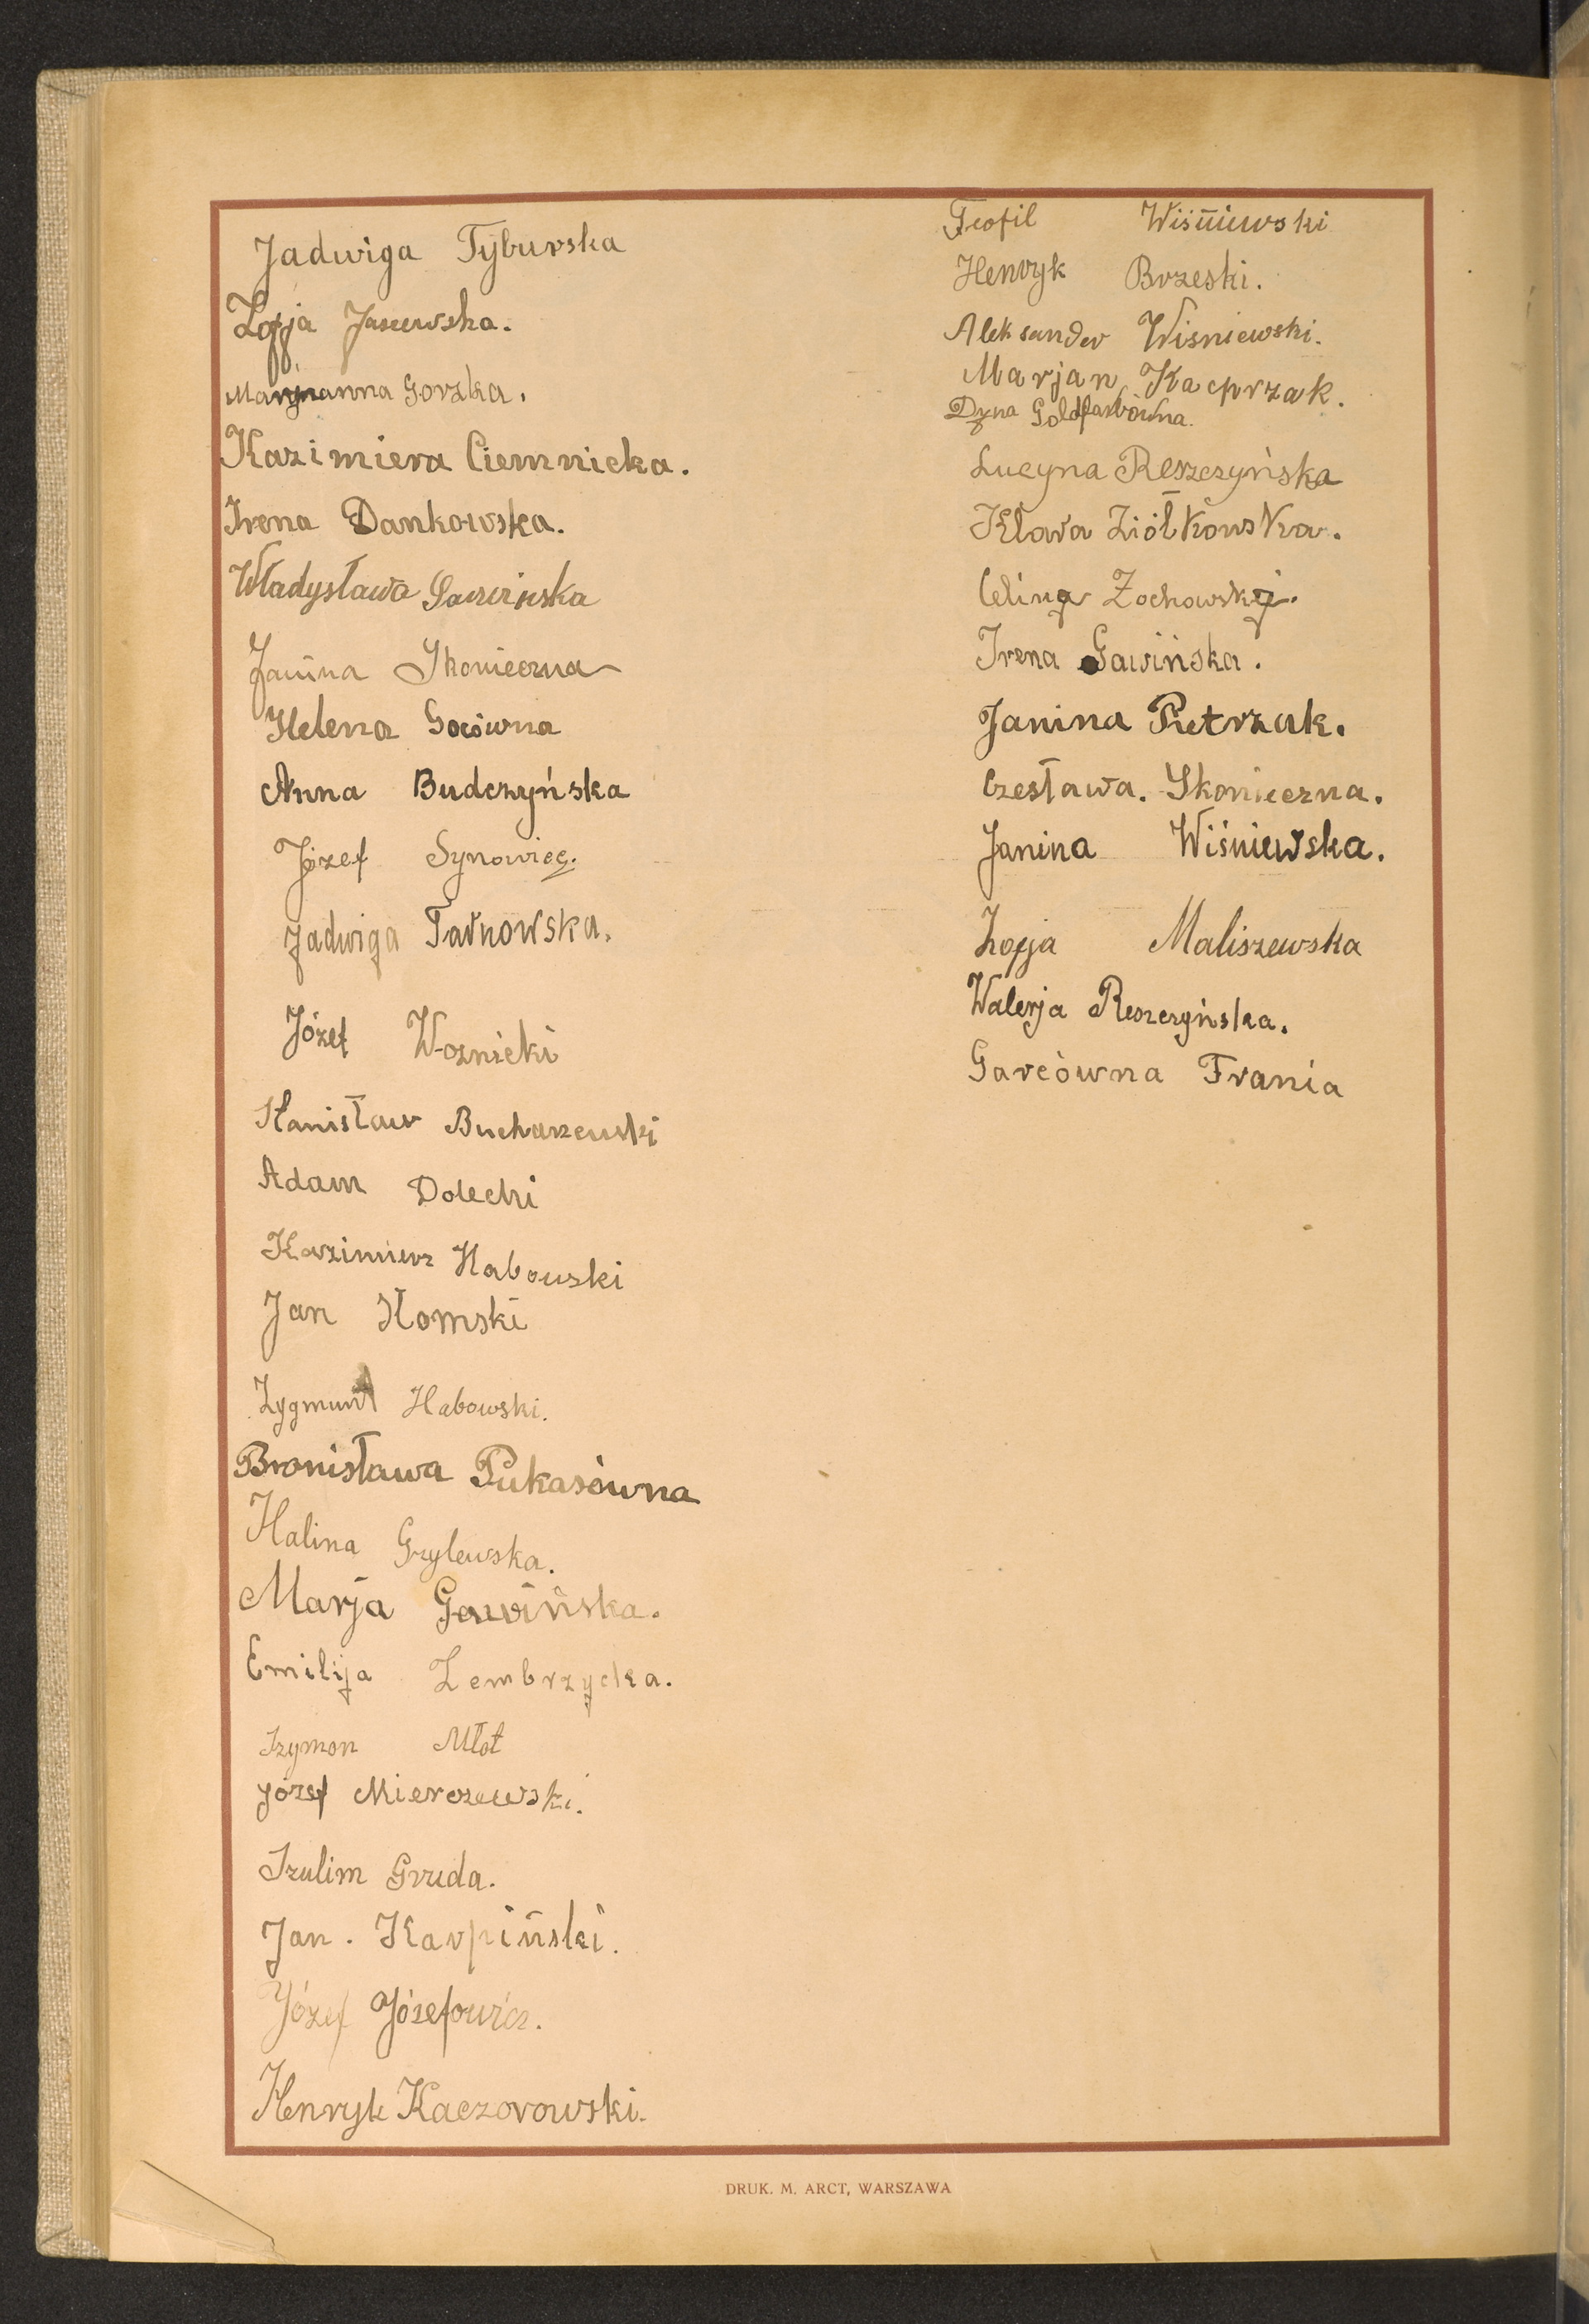 Jadwiga Tyburska
Zofja Jasiewska.
Marjanna Gorzka.
Kazimiera Ciemnicka.
Irena Dankowska.
Władysława Gawińska
Janina Skonieczna
Helena Gocówna
Anna Budczyńska
Józef Synowiec.
Jadwiga Tarnowska.
Józef Woznicki
Stanisław Bucharzewski
Adam Dołecki
Kazimierz Habowski
Jan Komski
Zygmunt Habowski.
Bronisława Pukasówna
Halina Grylewska.
Marja Gawińska.
Emilija Zembrzycka.
Szymon Młot
Józef Mierzewski.
Szulim Gruda.
Jan. Karpiński.
Józef Józefowicz.
Henryk Kaczorowski.
Teofil Wiśniewski
Henryk Brzeski.
Aleksander Wisniewski.
Marjan Kacprzak.
Dyna Goldfarbówna.
Lucyna Reszczyńska
Klara Ziółkowska.
Celina Zochowska.
Irena Gawińska.
Janina Pietrzak.
Czesława. Skonieczna.
Janina Wiśniewska.
Zofja Maliszewska
Walerja Reszczyńska.
Garcówna Frania
DRUK. M. ARCT, WARSZAWA